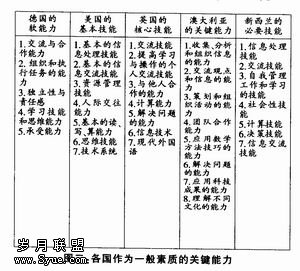 德国的
软能力
1.交流与合
作能力
2.组织和执
行任务的能
力
3.独立性与
责任感
4.学习技能
和思维能力
5.承受能力
美国的
基本技能
1.基本的信
息技能
2.基本的信
息交流技能
3.资源管理
技能
4.人际交往
能力
5.基本的读、
写、算能力
6.思维技能
7.技术系统
英国的
核心技能
1.交流技能
2.提高学习
与操作的个
人交流技能
3.与他人合
作的能力
4.计算能力
5.解决问题
的能力
6.信息技术
7.现代外国
语
澳大利亚
的关键能力
1.收集、分析
和组织信息
的能力
2.交流观点
和信息的能
力
3.策划和组
织活动的能
力
4.团队合作
能力
5.应用数学
方法技巧的
能力
6.解决问题
的能力
7.应用科技
成果的能力
8.理解不同
文化的能力
新西兰的
必要技能
1.信息处理
技能
2.交流技能
3.自我管理
工作和学习
的技能
4.社会性技
能
5.计算技能
6.决策技能
7.信息交流
技能
各国作为一般素质的关键能力
岁月联盟
www.Syue.com